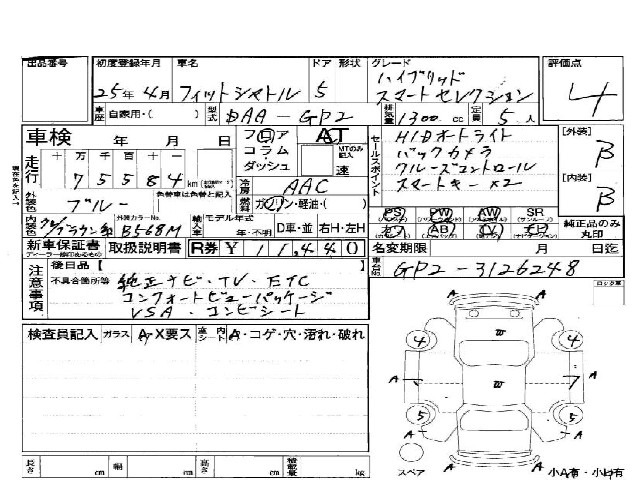 出品番号 初度登録年月 車名 ドア 形状 グレード 評価点
25年 4月 フィットシャトル 5 ハイブリッド
スマートセレクション 4
車歴 自家用・( ) 型式 DAA-GP2 排気量 1300 cc 定員 5 人
車検 年 月 日 フロア AT セールスポイント HIDオートライト [外装] B
コラム MTのみ記入 バックカメラ
走行 十 万 千 百 十 一 ダッシュ 速 クルーズコントロール
7 5 5 8 4 km 冷房 AAC スマートキー×2 [内装] B
外装色 ブルー 色替車は色替と記入 燃料 ガソリン・軽油・( ) PS PW AW SR
内装色 外装カラーNo. B568M 輸入車 モデル年式 年・不明 D車・並 右H・左H AB TV 純正品のみ丸印
新車保証書 取扱説明書 R券 ¥ 11,440 名変期限 月 日迄
注意事項 後日品 【 】 車台No. GP2-3126248
不具合箇所等 純正ナビ・TV・ETC
コンフォートビューパッケージ
VSA・コンビシート
検査員記入 ガラス A・X要ス 室内 シート A・コゲ・穴・汚れ・破れ
A
4 W 4 A
A W 7
5 5 A
A
スペア 小A有・小U有
長さ cm 幅 cm 高さ cm 積載量 kg